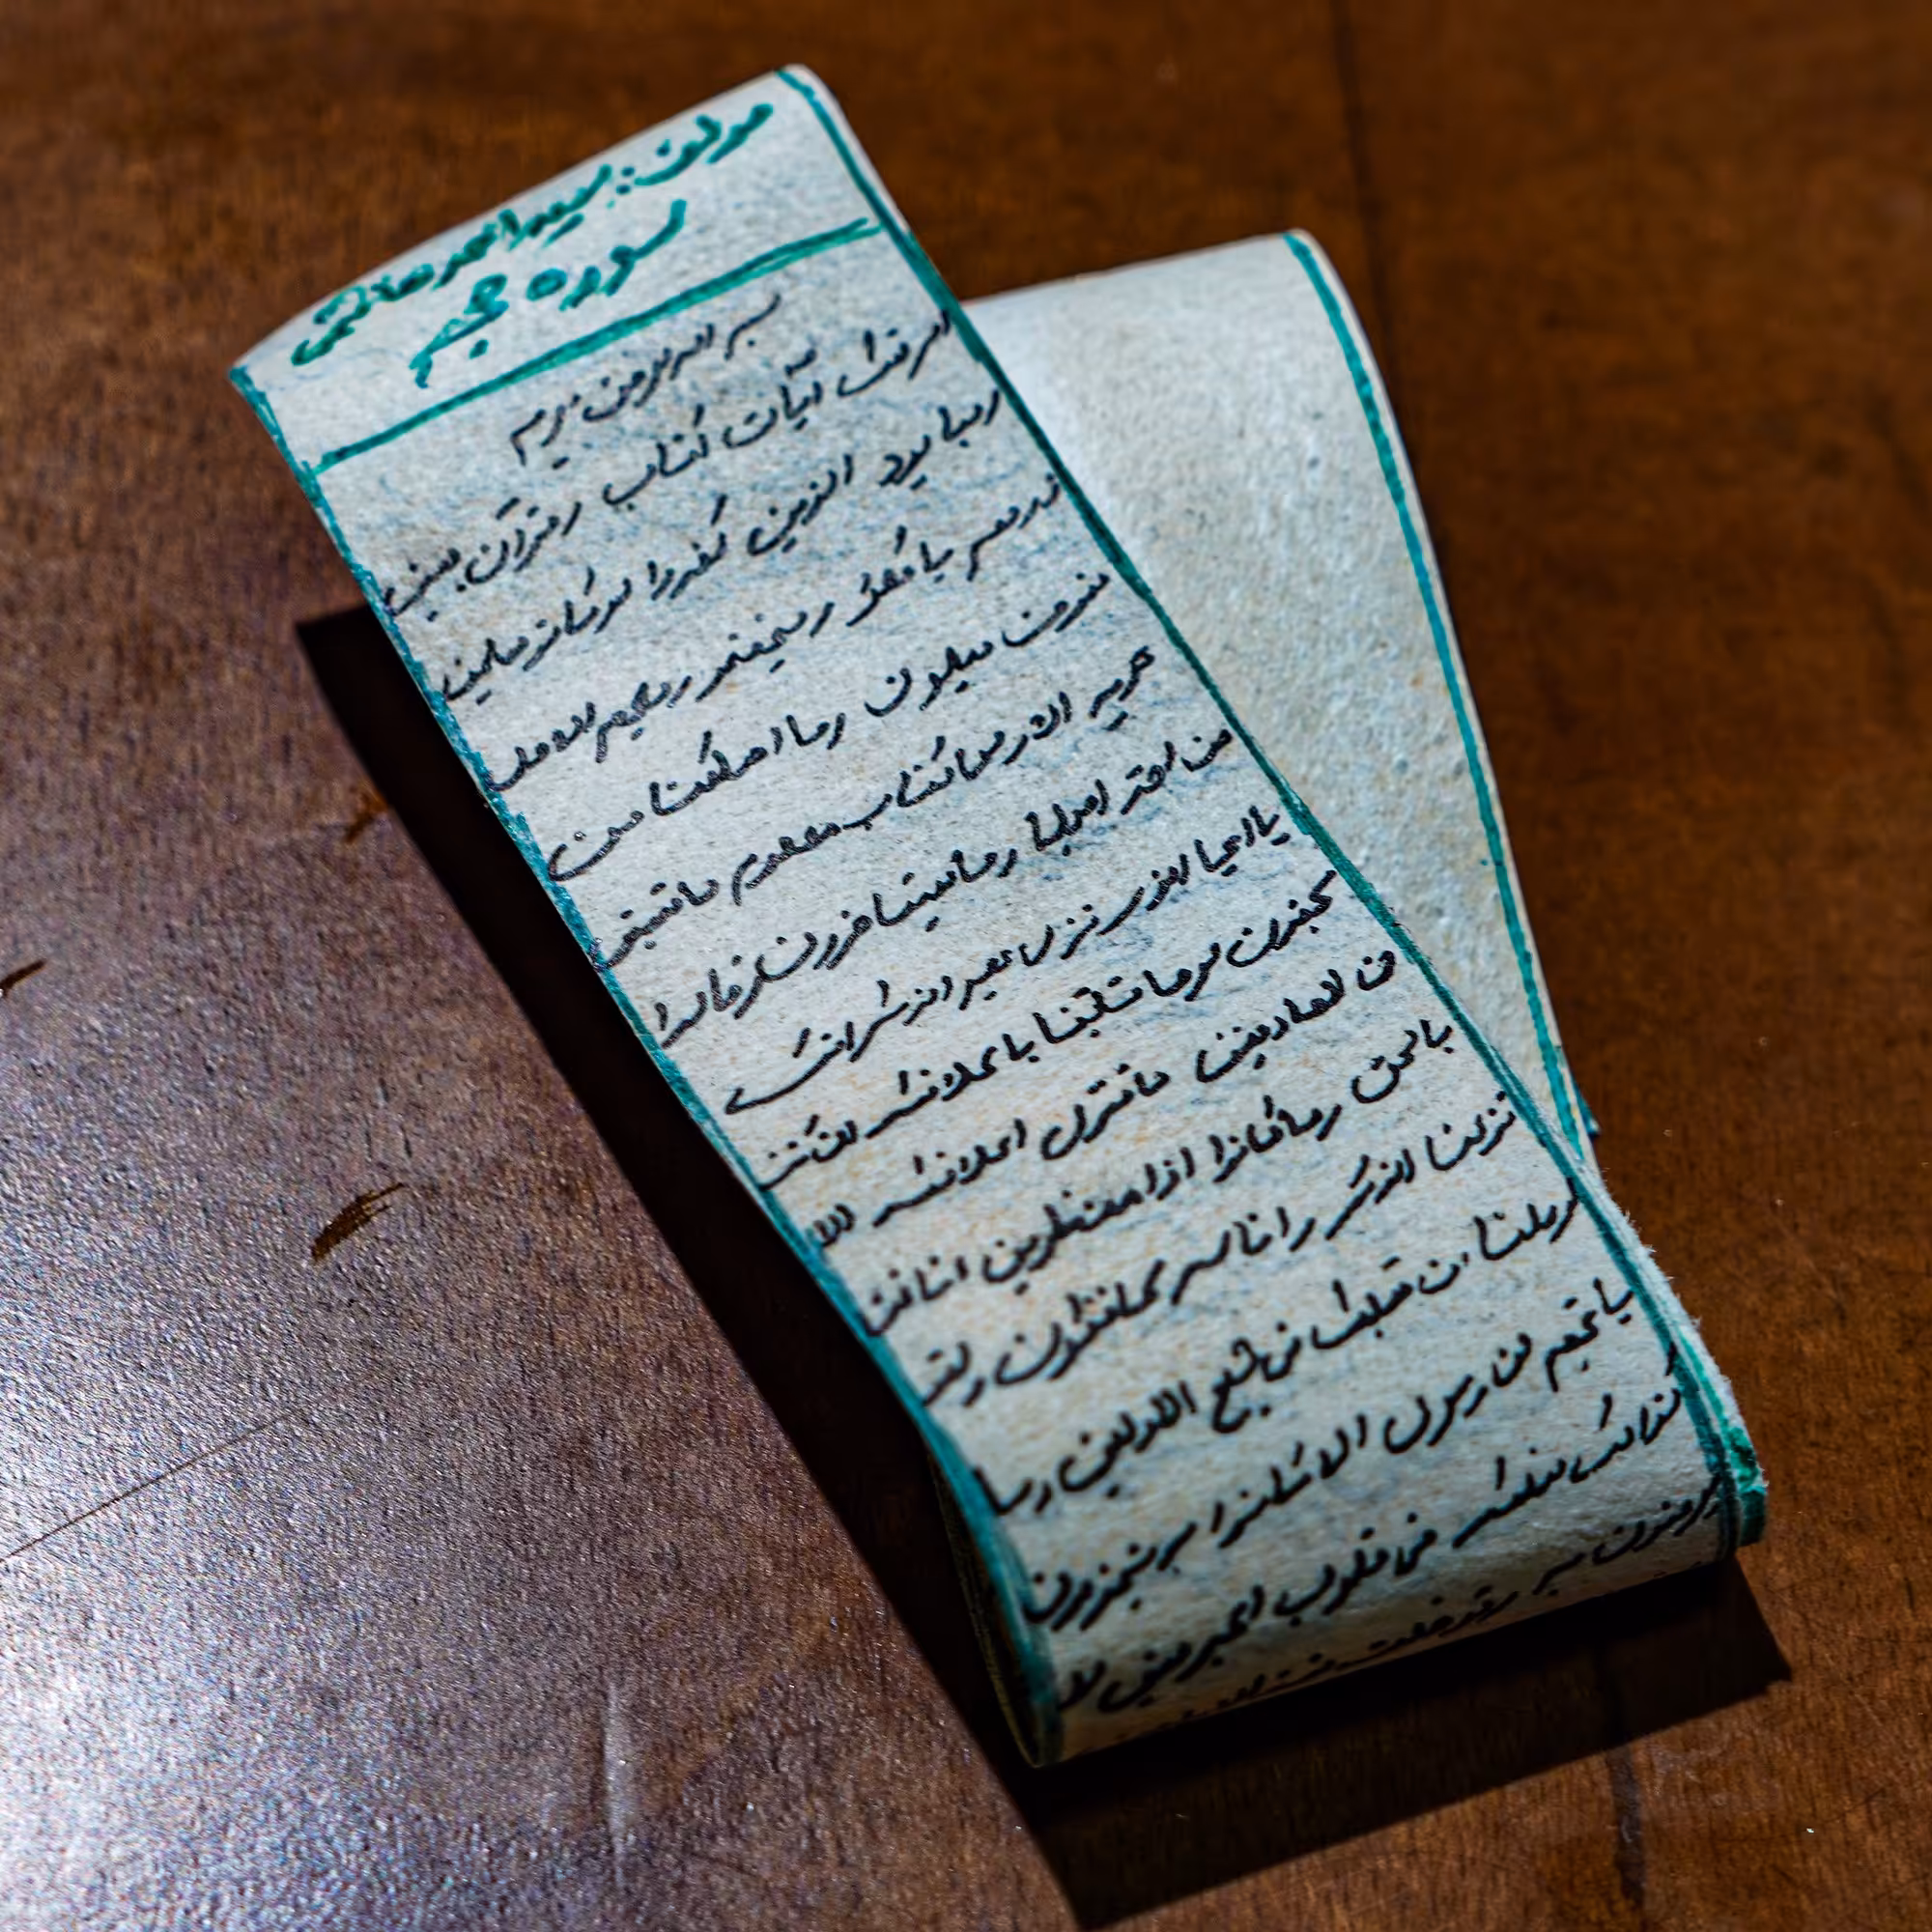 مولف: سید احمد هاشمی
سوره حجر
بسم الله الرحمن الرحیم
الر تلک آیات کتاب و قرآن مبین
ربما یود الذین کفروا لو کانو مسلمین
ذرهم یاکلو و یتمتعو و یلههم الامل
فسوف یعلمون وما اهلکنا من
قریه الا و لها کتاب معلوم ما تسبق
من امة اجلها وما یستاخرون و قالوا
یا ایها الذی نزل علیه الذکر انک
لمجنون لو ما تاتینا بالملائکه ان کنت
من الصادقین ما ننزل الملائکه الا
بالحق وما کانوا اذا منظرین انا نحن
نزلنا الذکر و انا له لحافظون و لقد
ارسلنا من قبلک فی شیع الاولین وما
یاتیهم من رسول الا کانوا به یستهزون
کذالک نسلکه فی قلوب المجرمین لا
یومنون به و قد خلت